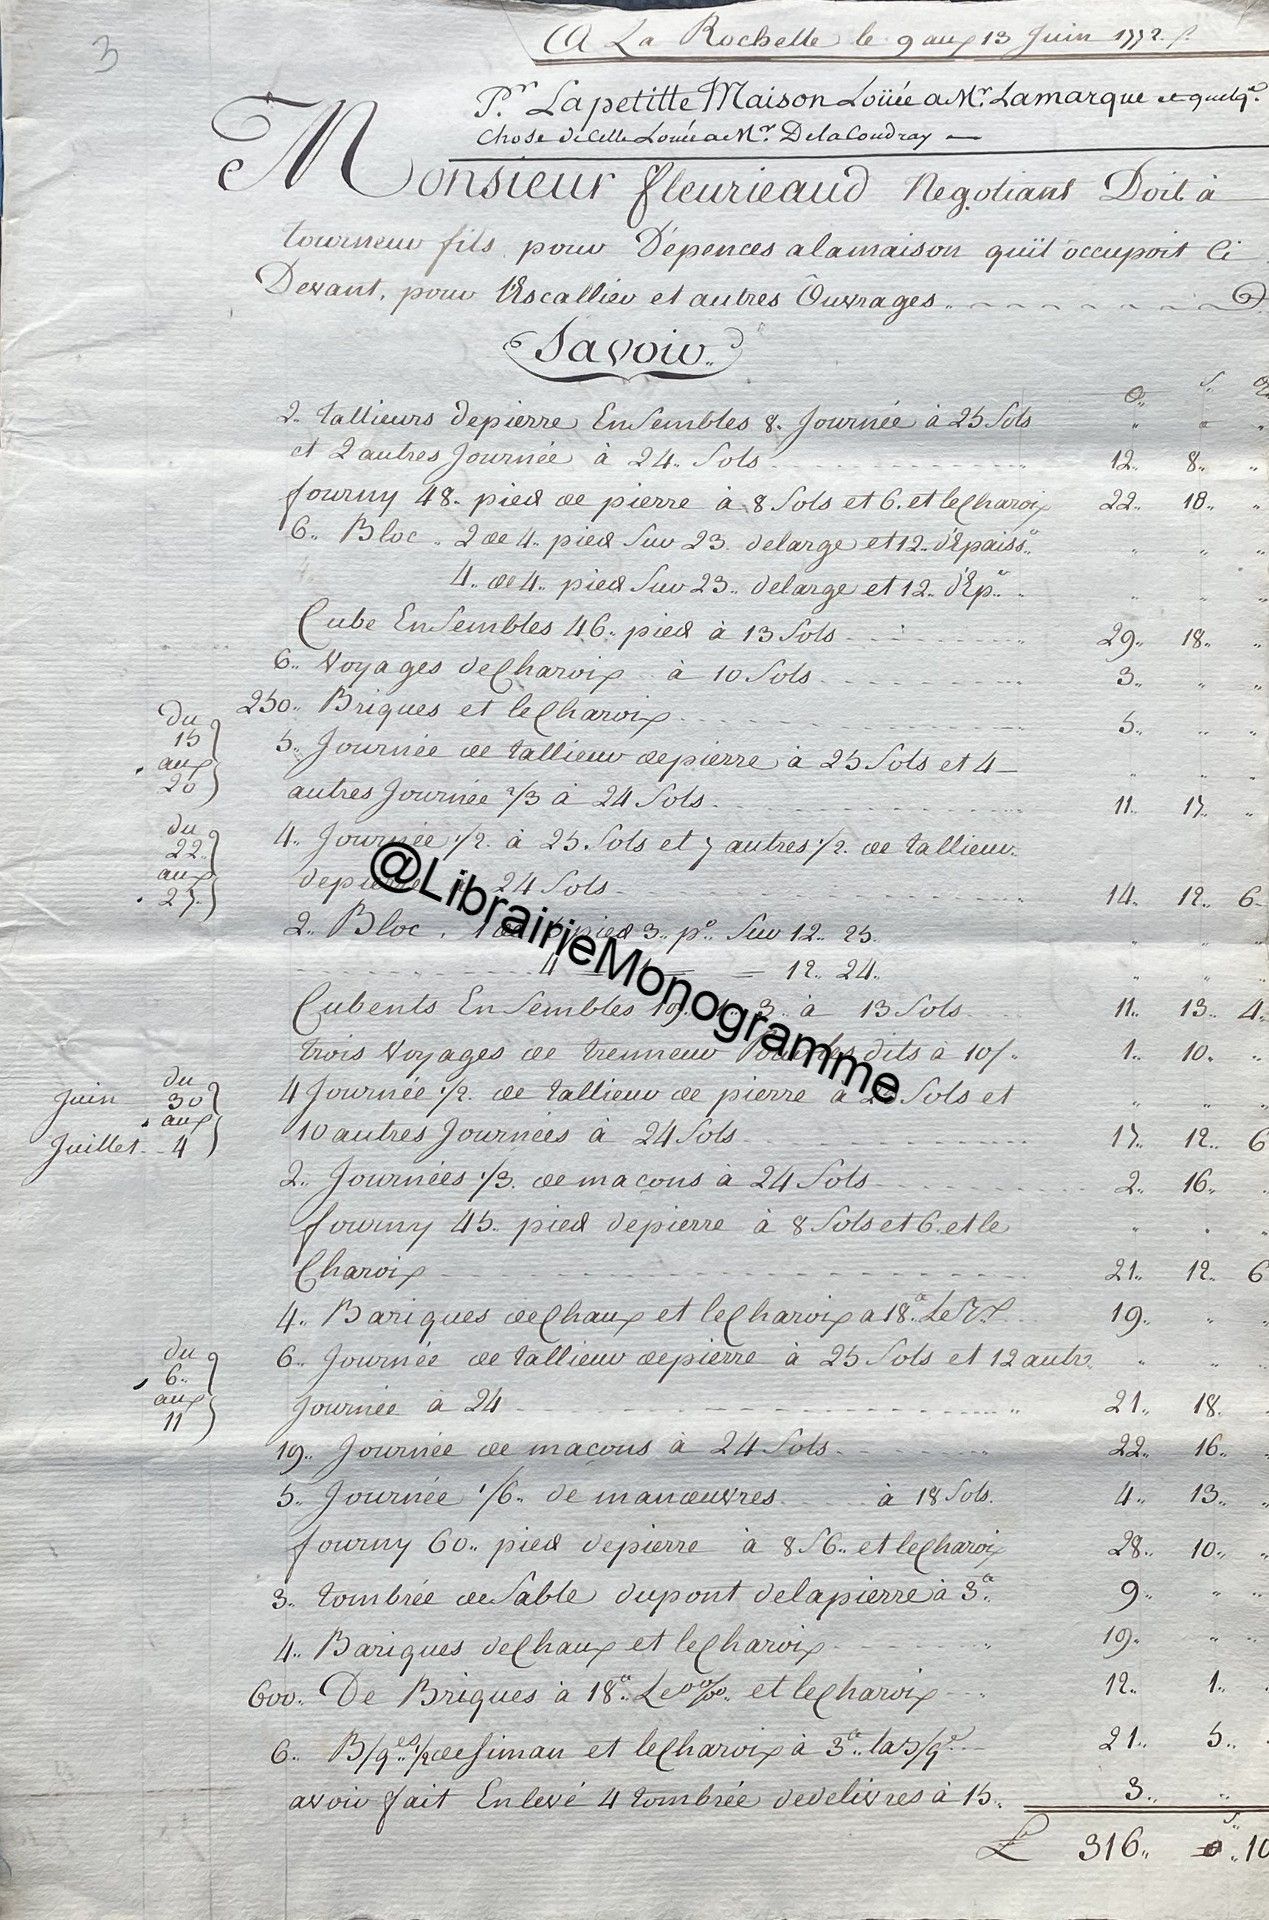 3
A La Rochelle le 9 aux 13 Juin 1772
Pr. Lapetitte Maison Loüée a Mr. Lamarque et quelqe.
Chose de Celle Louée a Mr. Delacoudray
Monsieur fleurieaud Negotiant Doit à
tourneur fils pour Dépences alamaison quil occupoit Ci
Devant, pour Escallier et autres Ouvrages
Savoir
2. tallieurs depierre EnSembles 8. Journée à 25 Sols
et 2 autres Journée à 24. Sols 12. 8.
fourny 48. pied de pierre à 8 Sols et 6. et leCharoix 22. 18.
6. Bloc. 2 de 4. pied Sur 23. delarge et 12. d'Epaissr.
4. de 4. pied Sur 23. delarge et 12. d'Epr.
Cube EnSembles 46. pied à 13 Sols 29. 18.
6. Voyages deCharoix à 10 Sols 3.
250. Briques et leCharoix 5.
du 15 aux 20
5. Journée de tallieur depierre à 25 Sols et 4
autres Journée 2/3 à 24 Sols 11. 17.
du 22. aux 27.
4. Journée 1/2. à 25. Sols et 7 autres 1/2. de tallieur
depierre 24 Sols 14. 12. 6
2. Bloc. pied 3. po. Sur 12. 25.
4 12. 24.
Cubents EnSembles 19. 3. à 13 Sols 11. 13. 4.
trois Voyages de trenneur dits à 10s. 1. 10.
Juin du 30 aux Juillet 4
4 Journée 1/2. de tallieur de pierre à Sols et
10 autres Journées à 24 Sols 17. 12. 6
2. Journées 1/3. de macons à 24 Sols 2. 16.
fourny 45. pied depierre à 8 Sols et 6. et le
Charoix 21. 12. 6
4. Bariques deChaux et leCharoix a 18. Le 19.
du 6. aux 11
6. Journée de tallieur depierre à 25 Sols et 12 autr.
Journée à 24 21. 18.
19. Journée de macons à 24 Sols 22. 16.
5. Journée 1/6. de manœuvres à 18 Sols. 4. 13.
fourny 60. pied depierre à 8 S 6. et leCharoix 28. 10.
3. tombrée deSable dupont delapierre à 3. 9.
4. Bariques deChaux et leCharoix 19.
600. De Briques à 18. Le et leCharoix 12. 1.
6. B/ques. 1/2 deSiman et leCharoix à 3. la B/que 21. 5.
avoir fait Enlevé 4 tombrée dedelivres à 15. 3.
£ 316. 0. 10
@LibrairieMonogramme